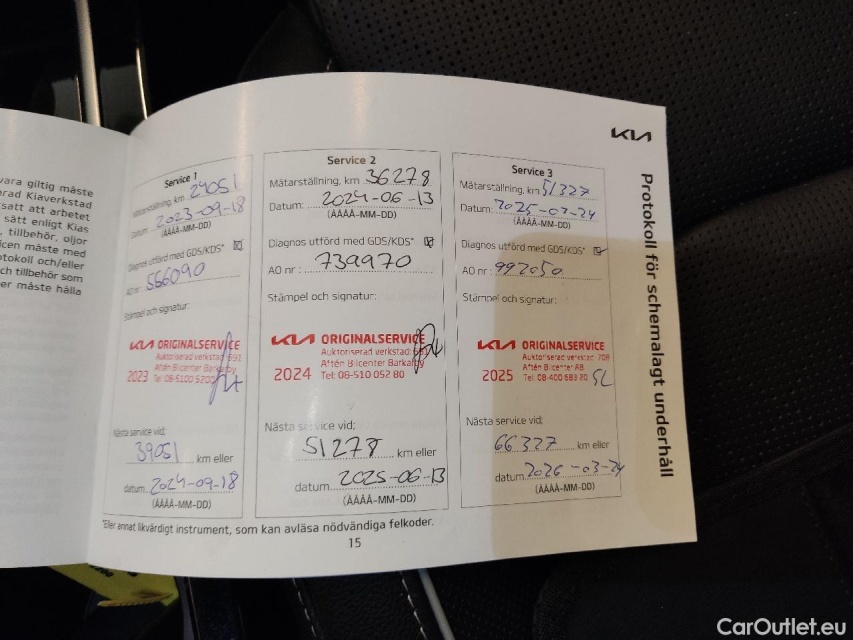 vara giltig måste
erad Kiaverkstad
satt att arbetet
sätt enligt Kias
, tillbehör, oljor
icen måste med
otokoll och/eller
ch tillbehör som
er måste hålla
KIA
Protokoll för schemalagt underhåll
Service 1
Mätarställning, km 24051
Datum: 2023-09-18
(ÅÅÅÅ-MM-DD)
Diagnos utförd med GDS/KDS*
AO nr: 566090
Stämpel och signatur:
KIA ORIGINALSERVICE
Auktoriserad verkstad 691
Aftén Bilcenter Barkarby
2023 Tel: 08-5100 5200
Nästa service vid:
39051 km eller
datum 2024-09-18
(ÅÅÅÅ-MM-DD)
Service 2
Mätarställning, km 36278
Datum: 2024-06-13
(ÅÅÅÅ-MM-DD)
Diagnos utförd med GDS/KDS*
AO nr : 739970
Stämpel och signatur:
KIA ORIGINALSERVICE
Auktoriserad verkstad 691
Aftén Bilcenter Barkarby
2024 Tel: 08-510 052 80
Nästa service vid:
51278 km eller
datum 2025-06-13
(ÅÅÅÅ-MM-DD)
Service 3
Mätarställning, km 51327
Datum: 2025-03-24
(ÅÅÅÅ-MM-DD)
Diagnos utförd med GDS/KDS*
AO nr : 992050
Stämpel och signatur:
KIA ORIGINALSERVICE
Auktoriserad verkstad 708
Aftén Bilcenter AB
2025 Tel: 08-400 683 20 SL
Nästa service vid:
66327 km eller
datum 2026-03-24
(ÅÅÅÅ-MM-DD)
*Eller annat likvärdigt instrument, som kan avläsa nödvändiga felkoder.
15
CarOutlet.eu